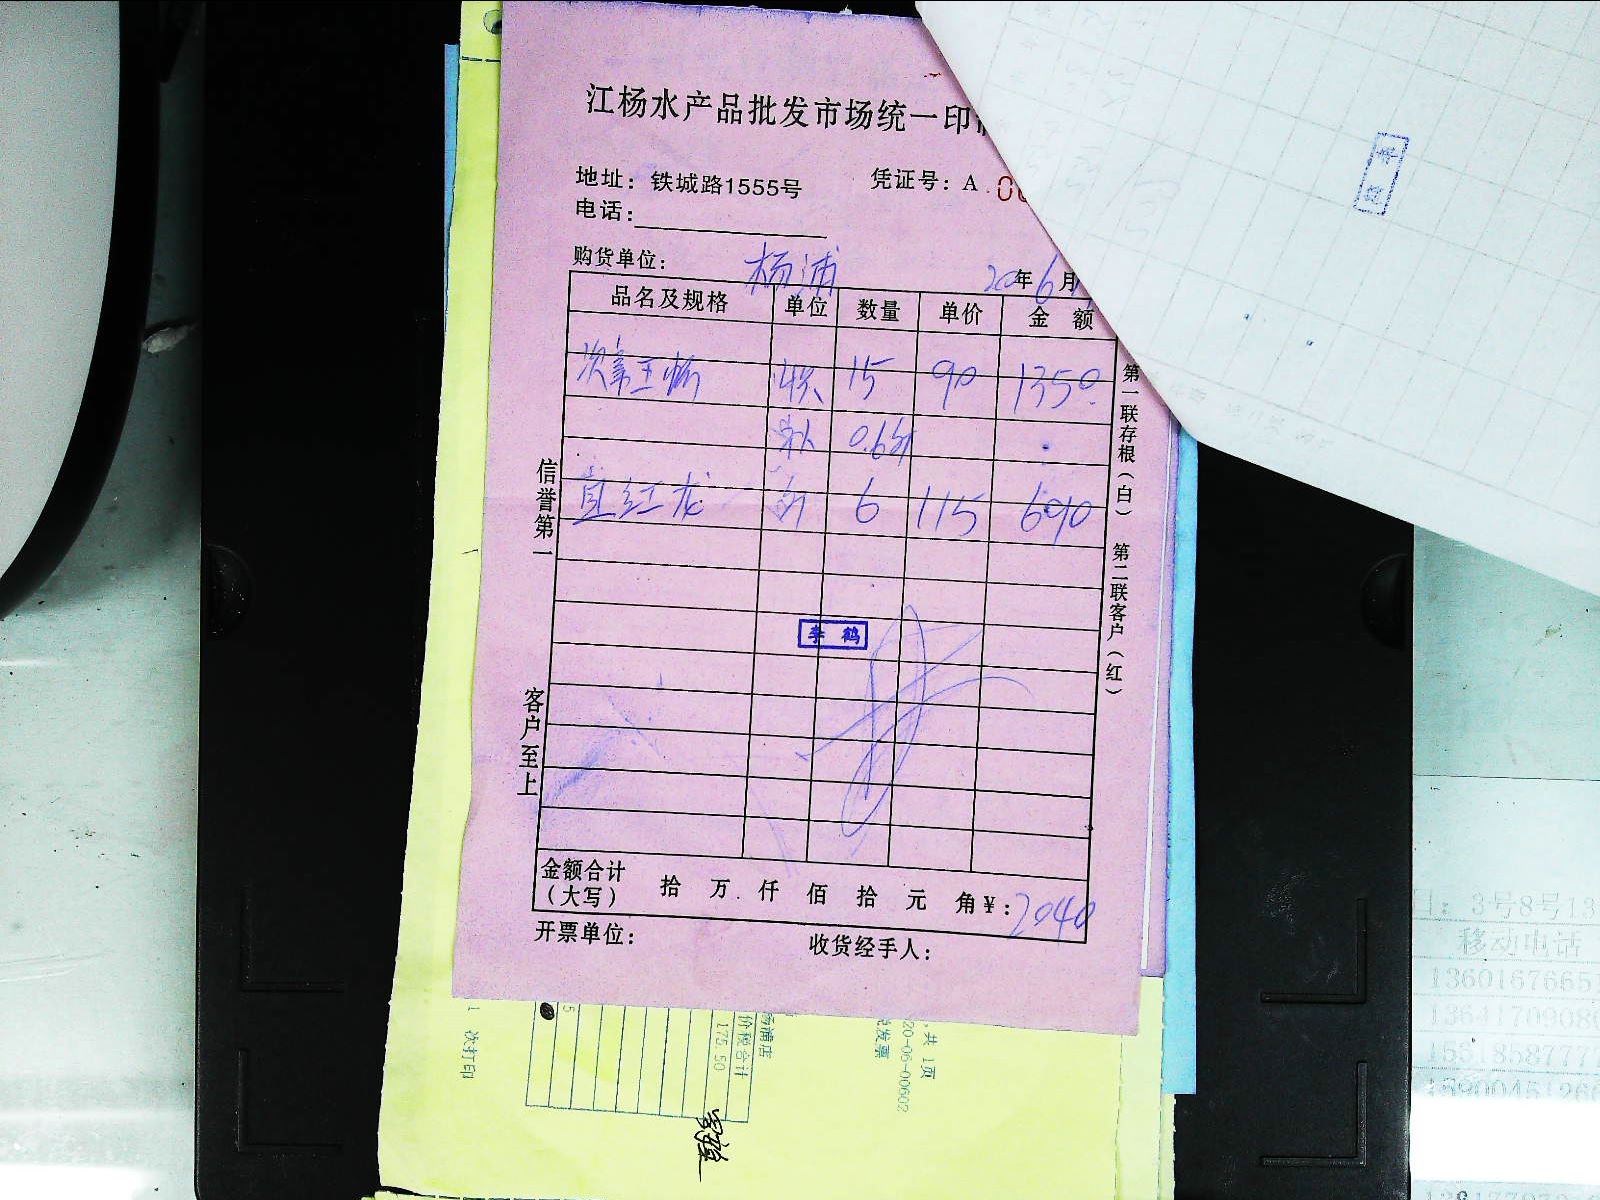 江杨水产品批发市场统一印
地址：铁城路1555号 凭证号：A.00
电话：
购货单位：杨浦 20年6月
品名及规格 单位 数量 单价 金额
15 90 1350
0.6斤
直红龙 斤 6 115 690
信誉第一
客户至上
第一联存根（白） 第二联客户（红）
李鹤
金额合计（大写） 拾 万 仟 佰 拾 元 角 ￥：2040
开票单位： 收货经手人：
共 1页
20-06-00602
发票
杨浦店
价税合计
175.50
5
1 次打印
3号8号13
移动电话
1360167665
1364170908
1561858777
1590045126